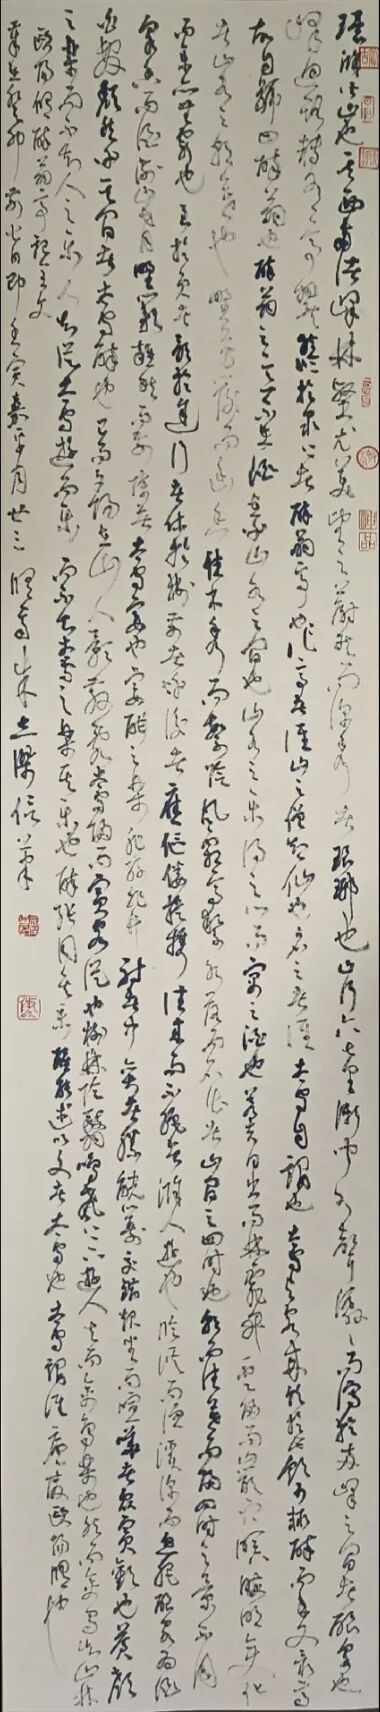 環滁皆山也其西南諸峰林壑尤美望之蔚然而深秀者琅琊也山行六七里漸聞水聲潺〻而瀉於兩峰之間者釀泉也
峰迴路轉有亭翼然臨於泉上者醉翁亭也作亭者誰山之僧智仙也名之者誰太守自謂也太守與客來飲於此飲少輒醉而年又最高
故自號曰醉翁也醉翁之意不在酒在乎山水之間也山水之樂得之心而寓之酒也若夫日出而林霏開雲歸而巖穴暝晦明變化
者山間之朝暮也野芳發而幽香佳木秀而繁陰風霜高潔水落而石出者山間之四時也朝而往暮而歸四時之景不同
而樂亦無窮也至於負者歌於途行者休於樹前者呼後者應傴僂提攜往來而不絕者滁人遊也臨溪而漁溪深而魚肥釀泉為酒
泉香而酒洌山肴野蔌雜然而前陳者太守宴也宴酣之樂非絲非竹射者中弈者勝觥籌交錯起坐而諠譁者眾賓歡也蒼顏
白髮頹然乎其間者太守醉也已而夕陽在山人影散亂太守歸而賓客從也樹林陰翳鳴聲上下遊人去而禽鳥樂也然而禽鳥知山林
之樂而不知人之樂人知從太守遊而樂而不知太守之樂其樂也醉能同其樂醒能述以文者太守也太守謂誰廬陵歐陽脩也
歐陽脩醉翁亭記主文
癸卯前七日即壬寅嘉平月廿三 信筆